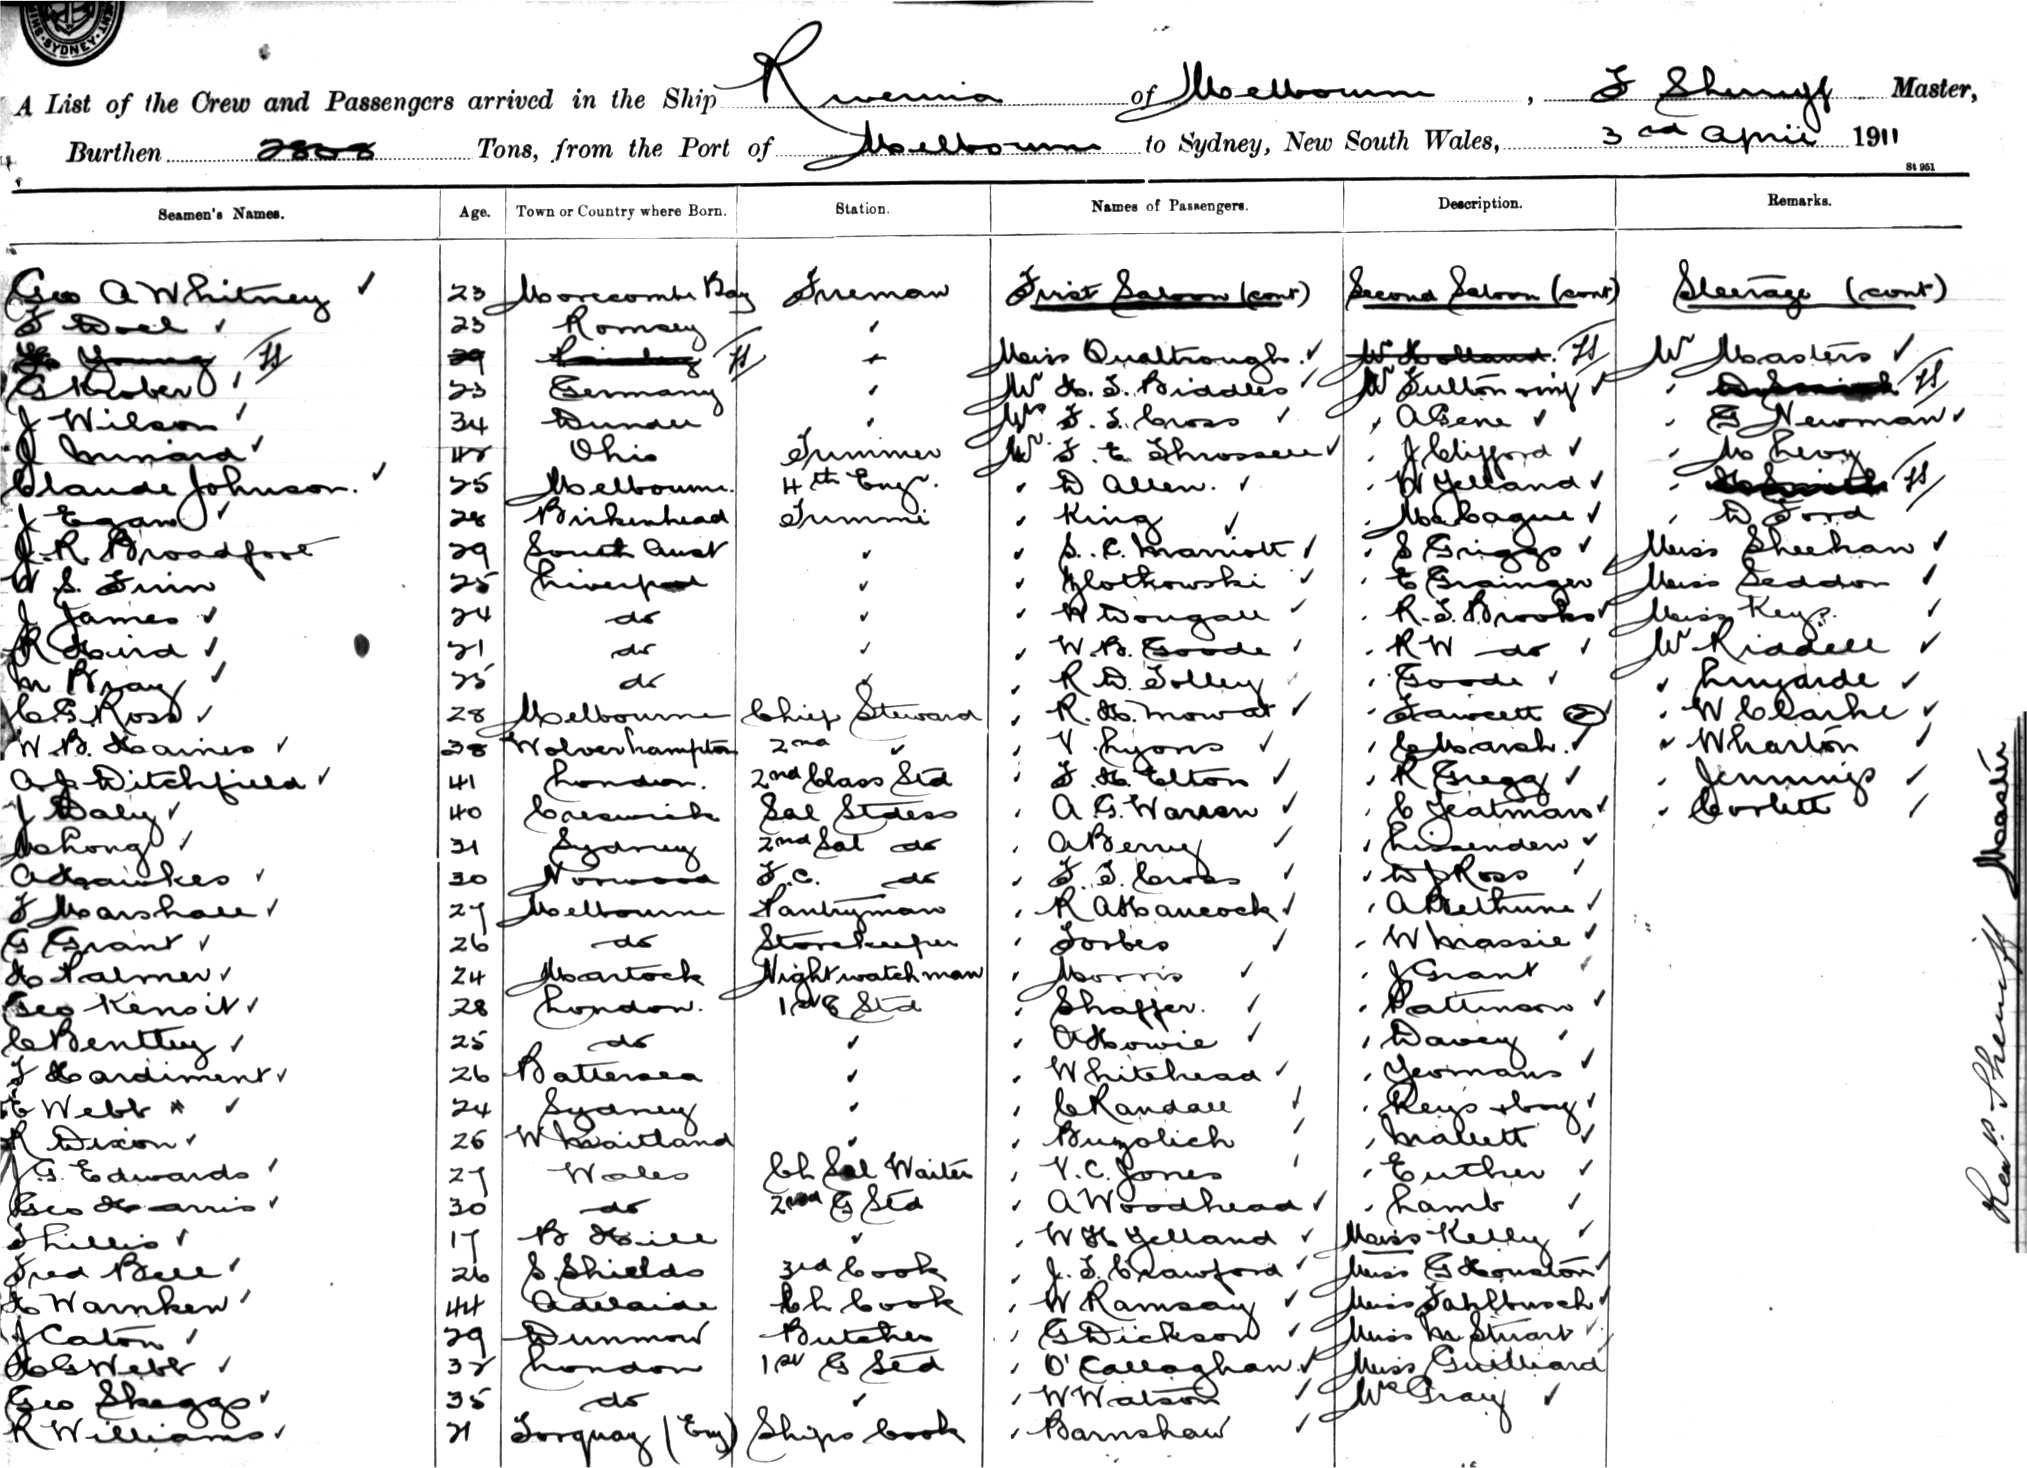 SYDNEY
A List of the Crew and Passengers arrived in the Ship Riverina of Melbourne, F Sherriff Master,
Burthen 2808 Tons, from the Port of Melbourne to Sydney, New South Wales, 3rd April 1911
St 951
Seamen's Names. Age. Town or Country where Born. Station. Names of Passengers. Description. Remarks.
Geo A Whitney 23 Morecombe Bay Fireman First Saloon (cont) Second Saloon (cont) Steerage (cont)
F Doel 23 Romsey
Young 29 Miss Qualtrough Mr Holland Mr Masters
G Krober 23 Germany Mr H. F. Biddles Mr Fulton D Smith
J Wilson 34 Dundee Mrs F. F. Cross A Gene G Newman
J Cunnard 42 Ohio Trimmer Mr F. E. Throssell J Clifford M Levy
Claude Johnson. 25 Melbourne. 4th Engr. D Allen. W Yelland H Smith
J Egan 28 Birkenhead Trimmer King McCague D Ford
J. R. Broadfoot 29 South Aust S. C. Marriott S Griggs Miss Sheehan
W S. Finn 25 Liverpool Zlotkowski E Grainger Miss Seddon
J James 24 do W Dougall R. F. Brooks Miss Keys.
R Hird 21 do W. B. Goode R W do Mr Riddell
M Bray 25 do R D. Tolley Goode
C G Ross 28 Melbourne Chief Steward R. H. Mowat Fawcett (2) W Clarke
W. B. Haines 38 Wolverhampton 2nd V. Lyons C Marsh. Wharton
A J Ditchfield 41 London. 2nd Class Std F. H. Elton R Gregg Jennings
J Daly 40 Creswick Sal Stdess A G. Warren C Yeatman Corlett
M Long 31 Sydney 2nd Sal do A Berry Lissenden
A Hawkes 30 Norwood F. C. do F. F. Cross D J Ross
F Marshall 27 Melbourne Pantryman R A Hancock A Bethune
G Grant 26 do Storekeeper Forbes W Massie
H Palmer 24 Martock Nightwatchman Morris J Grant
Geo Kensit 28 London. 1st G Std Shaffer. Pattinson
C Benttey 25 do A Howie Davey
F Hardiment 26 Battersea Whitehead Yeomans
C Webb 24 Sydney C Randall Keys & boy
R Dixon 26 W Maitland Buzolich Mallett
J G. Edwards 27 Wales Ch Sal Waiter V. C. Jones Euther
Geo Harris 30 do 2nd G Std A Woodhead Lamb
F Lillis 17 B Hill W H Yelland Miss Kelly
Fred Bell 26 S. Shields 3rd Cook J. F. Crawford Miss G Houston
H Warnken 44 Adelaide Ch Cook W Ramsay Miss Fahlbusch
J Caton 29 Dunmow Butcher G Dickson Miss M Stuart
H G Webb 32 London 1st G Std O'Callaghan Miss Guilliard
Geo Skeggs 35 do W Watson Mrs Gray
R Williams 21 Torquay (Eng) Ships Cook Barnshaw
Sherriff Master